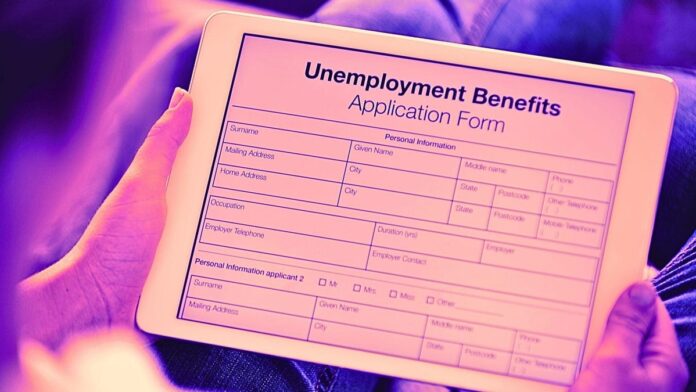 Unemployment Benefits
Application Form
Personal Information
Surname Given Name Middle name Phone
( )
Mailing Address City State Postcode Other Telephone
( )
Home Address City State Postcode Mobile Telephone
( )
Occupation Duration (yrs) Employer
Employer Telephone Employer Contact
Personal Information applicant 2 Mr Mrs Miss Other
Surname Given Name Middle name Phone
( )
Mailing Address City State Postcode Other Telephone